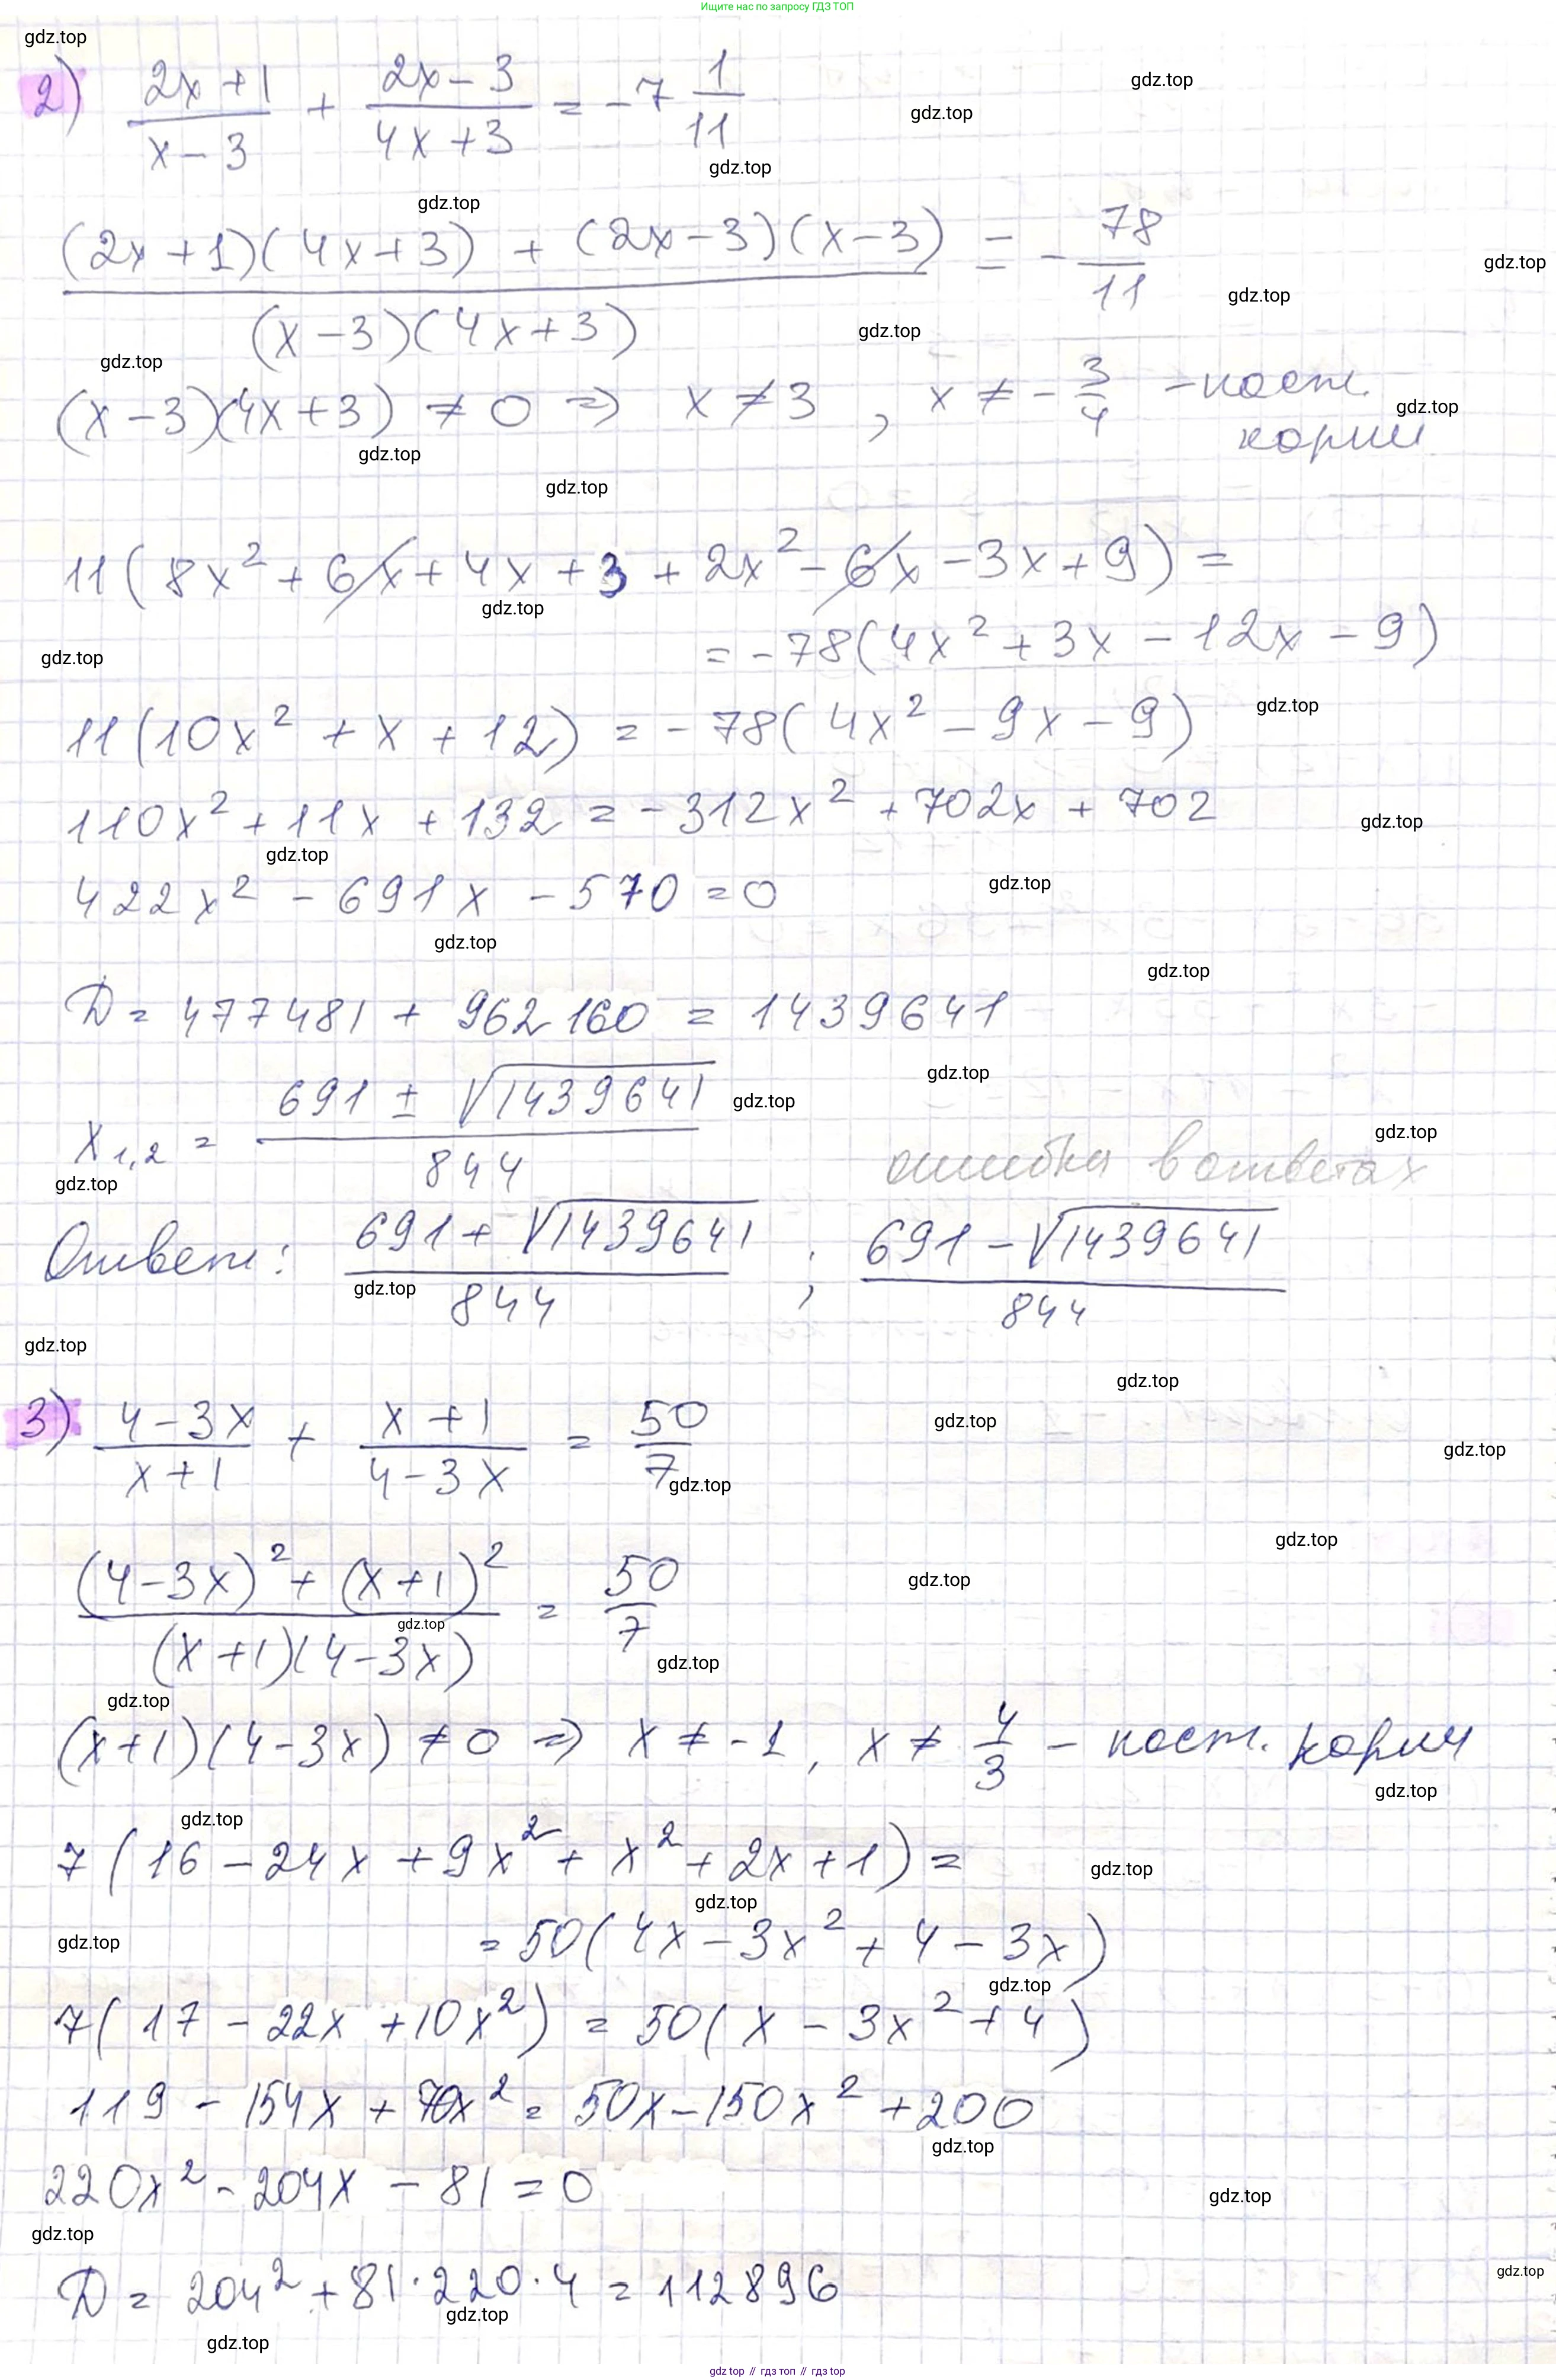 Ищите нас по запросу ГДЗ ТОП
2) (2x+1)/(x-3) + (2x-3)/(4x+3) = -7 1/11
((2x+1)(4x+3) + (2x-3)(x-3))/((x-3)(4x+3)) = - 78/11
(x-3)(4x+3) ≠ 0 ⇒ x ≠ 3 , x ≠ - 3/4 - пост.
корни
11(8x² + 6x + 4x + 3 + 2x² - 6x - 3x + 9) =
= -78(4x² + 3x - 12x - 9)
11(10x² + x + 12) = -78(4x² - 9x - 9)
110x² + 11x + 132 = -312x² + 702x + 702
422x² - 691x - 570 = 0
D = 477481 + 962160 = 1439641
x₁,₂ = (691 ± √1439641)/844
ошибка в ответах
Ответ: (691 + √1439641)/844 ; (691 - √1439641)/844
3) (4-3x)/(x+1) + (x+1)/(4-3x) = 50/7
((4-3x)² + (x+1)²)/((x+1)(4-3x)) = 50/7
(x+1)(4-3x) ≠ 0 ⇒ x ≠ -1, x ≠ 4/3 - пост. корни
7(16 - 24x + 9x² + x² + 2x + 1) =
= 50(4x - 3x² + 4 - 3x)
7(17 - 22x + 10x²) = 50(x - 3x² + 4)
119 - 154x + 70x² = 50x - 150x² + 200
220x² - 204x - 81 = 0
D = 204² + 81·220·4 = 112896
gdz top // гдз топ // gdz top